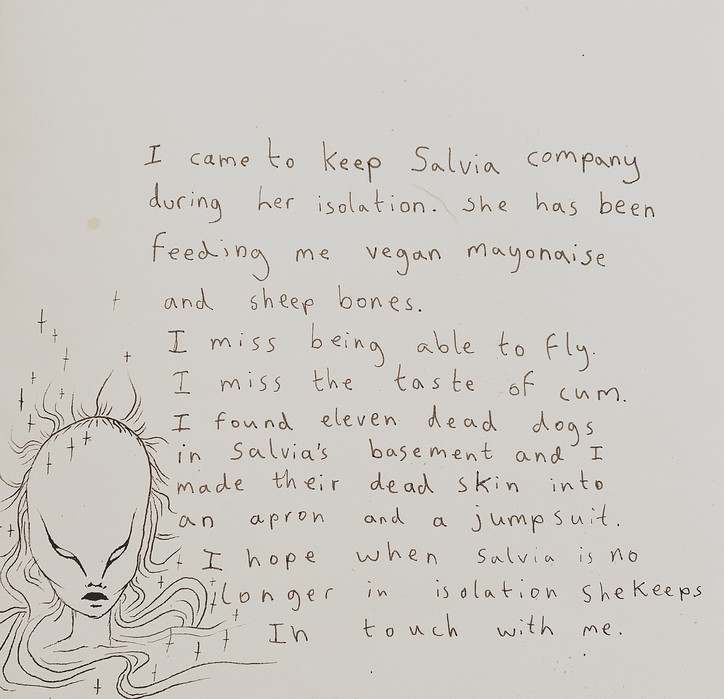 I came to keep Salvia company
during her isolation. she has been
feeding me vegan mayonaise
and sheep bones.
I miss being able to fly.
I miss the taste of cum.
I found eleven dead dogs
in Salvia's basement and I
made their dead skin into
an apron and a jumpsuit.
I hope when Salvia is no
longer in isolation she keeps
In touch with me.